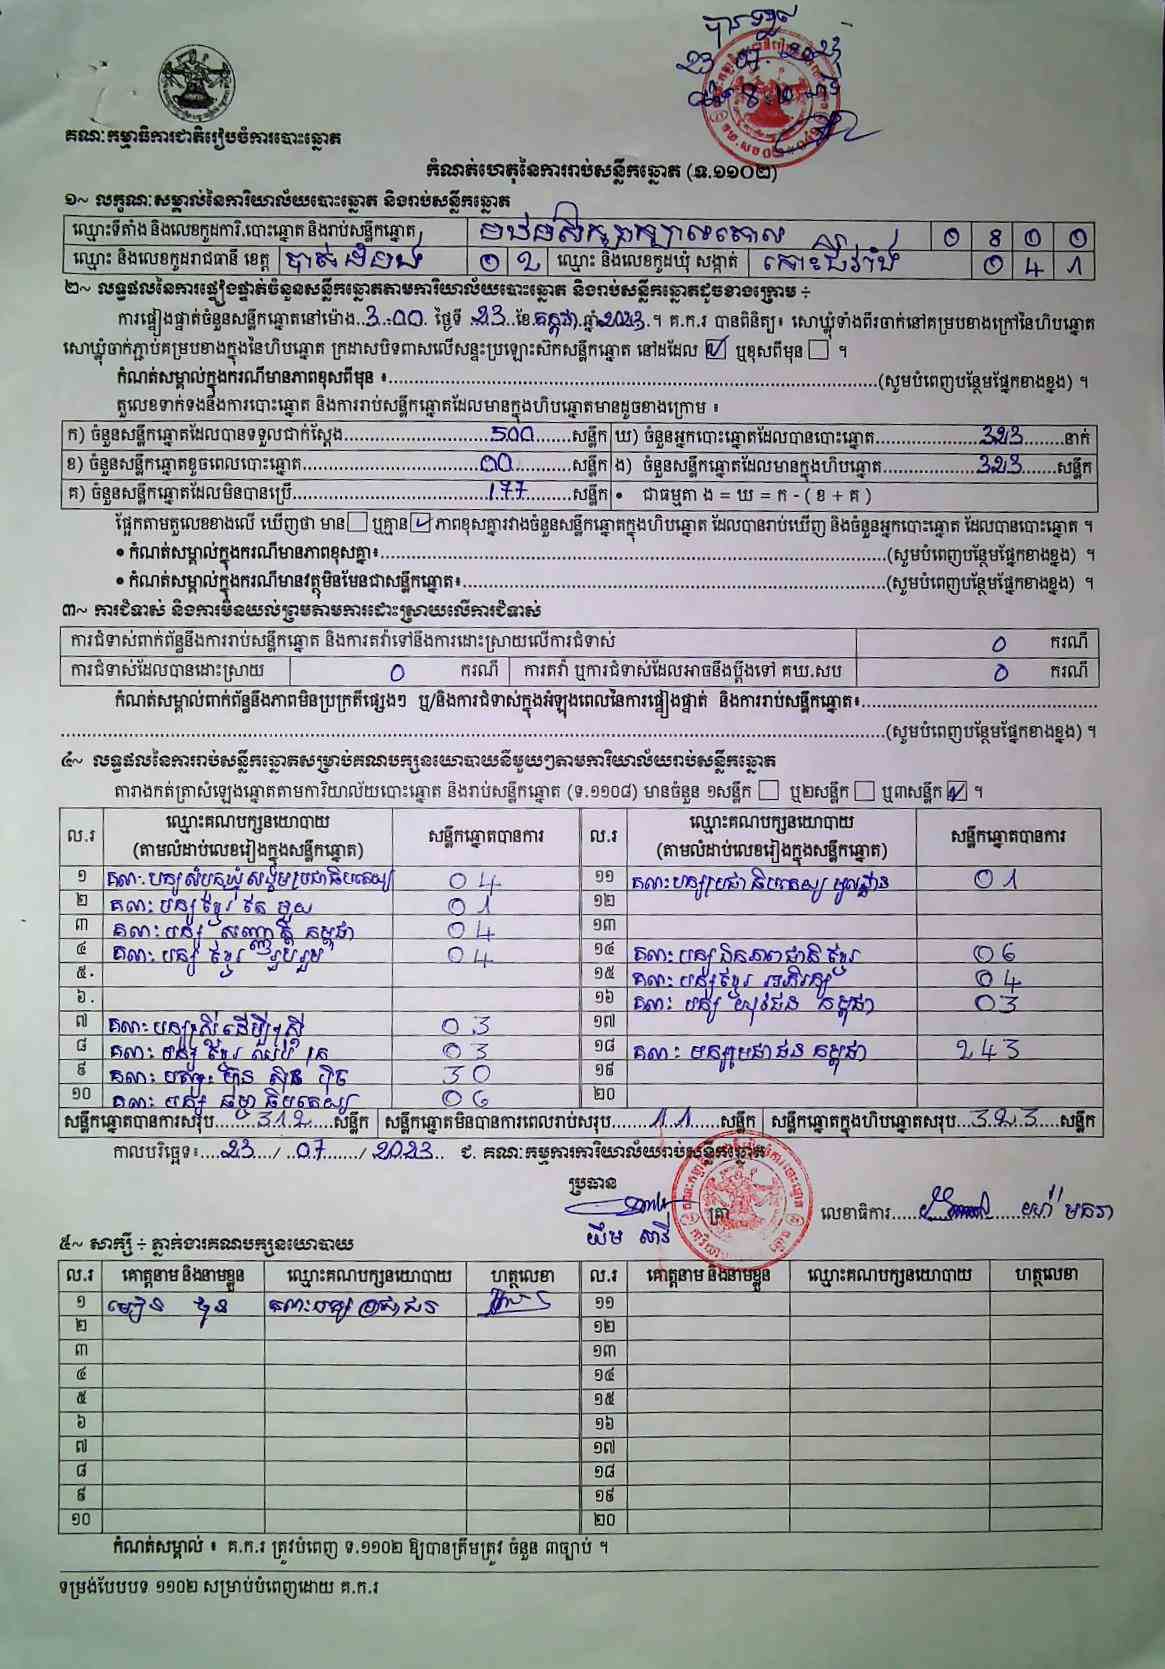 បានទទួល
23 07. 2023
គណៈកម្មាធិការជាតិរៀបចំការបោះឆ្នោត
កំណត់ហេតុនៃការរាប់សន្លឹកឆ្នោត (ទ.១១០២)
១~ លក្ខណៈសម្គាល់នៃការិយាល័យបោះឆ្នោត និងរាប់សន្លឹកឆ្នោត
ឈ្មោះទីតាំង និងលេខកូដការិ.បោះឆ្នោត និងរាប់សន្លឹកឆ្នោត
ឈ្មោះ និងលេខកូដរាជធានី ខេត្ត បាត់ដំបង ០ 2 ឈ្មោះ និងលេខកូដឃុំ សង្កាត់ កោះជីវាំង 0 4 1
២~ លទ្ធផលនៃការផ្ទៀងផ្ទាត់ចំនួនសន្លឹកឆ្នោតតាមការិយាល័យបោះឆ្នោត និងរាប់សន្លឹកឆ្នោតដូចខាងក្រោម ÷
ការផ្ទៀងផ្ទាត់ចំនួនសន្លឹកឆ្នោតនៅម៉ោង..3:00. ថ្ងៃទី .23..ខែ.កក្កដា.ឆ្នាំ2023.។ គ.ក.រ បានពិនិត្យ៖ សោឃ្លុំទាំងពីរចាក់នៅគម្របខាងក្រៅនៃហិបឆ្នោត
សោឃ្លុំចាក់ភ្ជាប់គម្របខាងក្នុងនៃហិបឆ្នោត ក្រដាសបិទពាសលើសន្ទះប្រឡោះស៊កសន្លឹកឆ្នោត នៅដដែល ☑ ឬខុសពីមុន ☐ ។
កំណត់សម្គាល់ក្នុងករណីមានភាពខុសពីមុន ៖.....(សូមបំពេញបន្ថែមផ្នែកខាងខ្នង) ។
តួលេខទាក់ទងនឹងការបោះឆ្នោត និងការរាប់សន្លឹកឆ្នោតដែលមានក្នុងហិបឆ្នោតមានដូចខាងក្រោម ៖
ក) ចំនួនសន្លឹកឆ្នោតដែលបានទទួលជាក់ស្ដែង.....500.....សន្លឹក ឃ) ចំនួនអ្នកបោះឆ្នោតដែលបានបោះឆ្នោត.....323.....នាក់
ខ) ចំនួនសន្លឹកឆ្នោតខូចពេលបោះឆ្នោត.....00.....សន្លឹក ង) ចំនួនសន្លឹកឆ្នោតដែលមានក្នុងហិបឆ្នោត.....323.....សន្លឹក
គ) ចំនួនសន្លឹកឆ្នោតដែលមិនបានប្រើ.....177.....សន្លឹក • ជាធម្មតា ង = ឃ = ក - ( ខ + គ )
ផ្អែកតាមតួលេខខាងលើ ឃើញថា មាន ☐ ឬគ្មាន ☑ ភាពខុសគ្នារវាងចំនួនសន្លឹកឆ្នោតក្នុងហិបឆ្នោត ដែលបានរាប់ឃើញ និងចំនួនអ្នកបោះឆ្នោត ដែលបានបោះឆ្នោត ។
• កំណត់សម្គាល់ក្នុងករណីមានភាពខុសគ្នា៖.....(សូមបំពេញបន្ថែមផ្នែកខាងខ្នង) ។
• កំណត់សម្គាល់ក្នុងករណីមានវត្ថុមិនមែនជាសន្លឹកឆ្នោត៖.....(សូមបំពេញបន្ថែមផ្នែកខាងខ្នង) ។
៣~ ការជំទាស់ និងការមិនយល់ព្រមតាមការដោះស្រាយលើការជំទាស់
ការជំទាស់ពាក់ព័ន្ធនឹងការរាប់សន្លឹកឆ្នោត និងការតវ៉ាទៅនឹងការដោះស្រាយលើការជំទាស់ 0 ករណី
ការជំទាស់ដែលបានដោះស្រាយ 0 ករណី ការតវ៉ា ឬការជំទាស់ដែលអាចនឹងប្ដឹងទៅ គឃ.សប 0 ករណី
កំណត់សម្គាល់ពាក់ព័ន្ធនឹងភាពមិនប្រក្រតីផ្សេងៗ ឬ/និងការជំទាស់ក្នុងអំឡុងពេលនៃការផ្ទៀងផ្ទាត់ និងការរាប់សន្លឹកឆ្នោត៖.....
.....(សូមបំពេញបន្ថែមផ្នែកខាងខ្នង) ។
៤~ លទ្ធផលនៃការរាប់សន្លឹកឆ្នោតសម្រាប់គណបក្សនយោបាយនីមួយៗតាមការិយាល័យរាប់សន្លឹកឆ្នោត
តារាងកត់ត្រាសំឡេងឆ្នោតតាមការិយាល័យបោះឆ្នោត និងរាប់សន្លឹកឆ្នោត (ទ.១១០៨) មានចំនួន ១សន្លឹក ☐ ឬ២សន្លឹក ☐ ឬ៣សន្លឹក ☑ ។
ល.រ ឈ្មោះគណបក្សនយោបាយ (តាមលំដាប់លេខរៀងក្នុងសន្លឹកឆ្នោត) សន្លឹកឆ្នោតបានការ ល.រ ឈ្មោះគណបក្សនយោបាយ (តាមលំដាប់លេខរៀងក្នុងសន្លឹកឆ្នោត) សន្លឹកឆ្នោតបានការ
១ គណៈបក្សសំបុកឃ្មុំសង្គមប្រជាធិបតេយ្យ 04 ១១ គណៈបក្សប្រជាធិបតេយ្យមូលដ្ឋាន 01
២ គណៈបក្សខ្មែរតែមួយ 01 ១២
៣ គណៈបក្ស សញ្ជាតិ កម្ពុជា 04 ១៣
៤ គណៈបក្ស ខ្មែរ រួបរួម 04 ១៤ គណៈបក្សឯកភាពជាតិខ្មែរ 06
៥. ១៥ គណៈបក្សខ្មែរ អភិរក្ស 04
៦. ១៦ គណៈបក្ស យុវជន កម្ពុជា 03
៧ គណៈបក្សស្រ្តីដើម្បីស្ត្រី 03 ១៧
៨ គណៈបក្ស ខ្មែរ 03 ១៨ គណៈ បក្សប្រជាជន កម្ពុជា 243
៩ គណៈបក្ស ហ៊្វុន ស៊ិន ប៉ិច 30 ១៩
១០ គណៈបក្ស ធម្មាធិបតេយ្យ 06 ២០
សន្លឹកឆ្នោតបានការសរុប.....312.....សន្លឹក សន្លឹកឆ្នោតមិនបានការពេលរាប់សរុប.....11.....សន្លឹក សន្លឹកឆ្នោតក្នុងហិបឆ្នោតសរុប...323....សន្លឹក
កាលបរិច្ឆេទ៖....23..../..07....../ 2023.. ជ. គណៈកម្មការការិយាល័យរាប់សន្លឹកឆ្នោត
ប្រធាន
ត្រា លេខាធិការ.....
យឹម សាវី
៥~ សាក្សី ÷ ភ្នាក់ងារគណបក្សនយោបាយ
ល.រ គោត្តនាម និងនាមខ្លួន ឈ្មោះគណបក្សនយោបាយ ហត្ថលេខា ល.រ គោត្តនាម និងនាមខ្លួន ឈ្មោះគណបក្សនយោបាយ ហត្ថលេខា
១ គណៈបក្ស ប្រជាជន ១១
២ ១២
៣ ១៣
៤ ១៤
៥ ១៥
៦ ១៦
៧ ១៧
៨ ១៨
៩ ១៩
១០ ២០
កំណត់សម្គាល់ ៖ គ.ក.រ ត្រូវបំពេញ ទ.១១០២ ឱ្យបានត្រឹមត្រូវ ចំនួន ៣ច្បាប់ ។
ទម្រង់បែបបទ ១១០២ សម្រាប់បំពេញដោយ គ.ក.រ